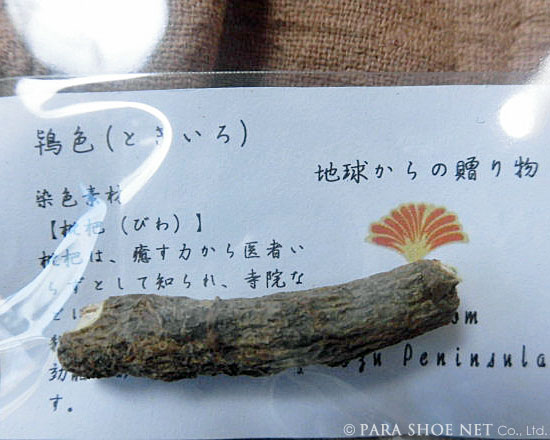 鴇色(ときいろ)
地球からの贈り物
染色素材
【枇杷(びわ)】
枇杷は、癒す力から医者い
らずとして知られ、寺院な
ど
す。
Peninsula
© PARA SHOE NET Co., Ltd.